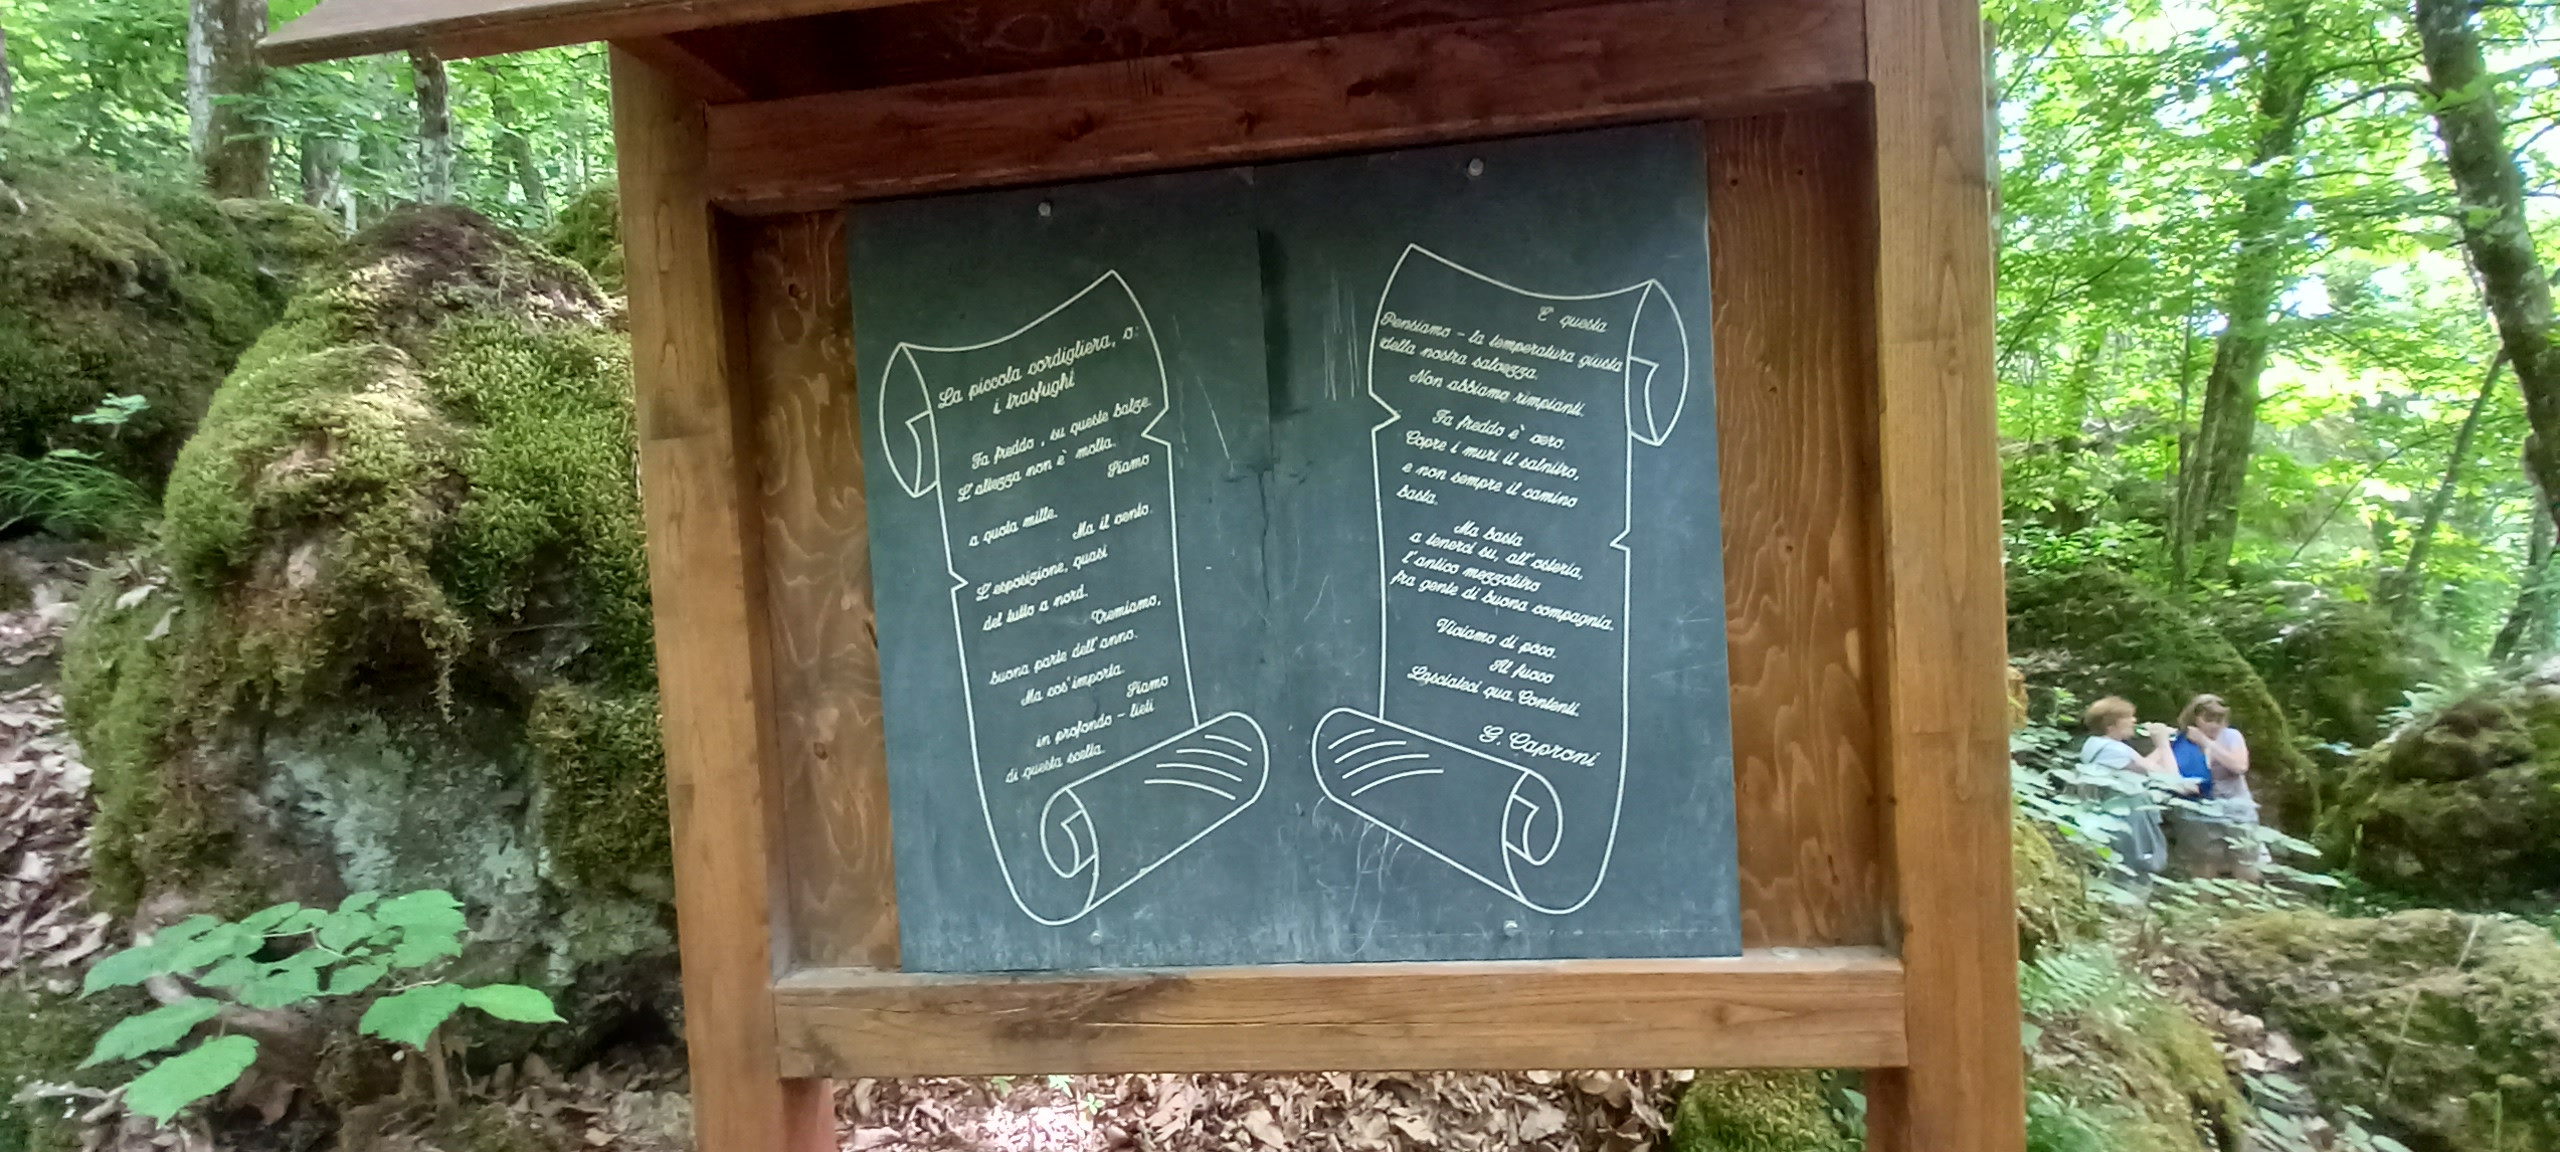 La piccola cordigliera, o:
i trasfughi
Fa freddo, su queste balze.
L'altezza non è molta.
Siamo
a quota mille.
Ma il vento.
L'esposizione, quasi
del tutto a nord.
Tremiamo,
buona parte dell'anno.
Ma cos'importa.
Siamo
in profondo - lieti
di questa scelta.
E' questa
Pensiamo - la temperatura giusta
della nostra salvezza.
Non abbiamo rimpianti.
Fa freddo è vero.
Copre i muri il salnitro,
e non sempre il camino
basta.
Ma basta
a tenerci su, all'osteria,
l'antico mezzolitro
fra gente di buona compagnia.
Viviamo di poco.
Al fuoco
Lasciateci qua. Contenti.
G. Caproni